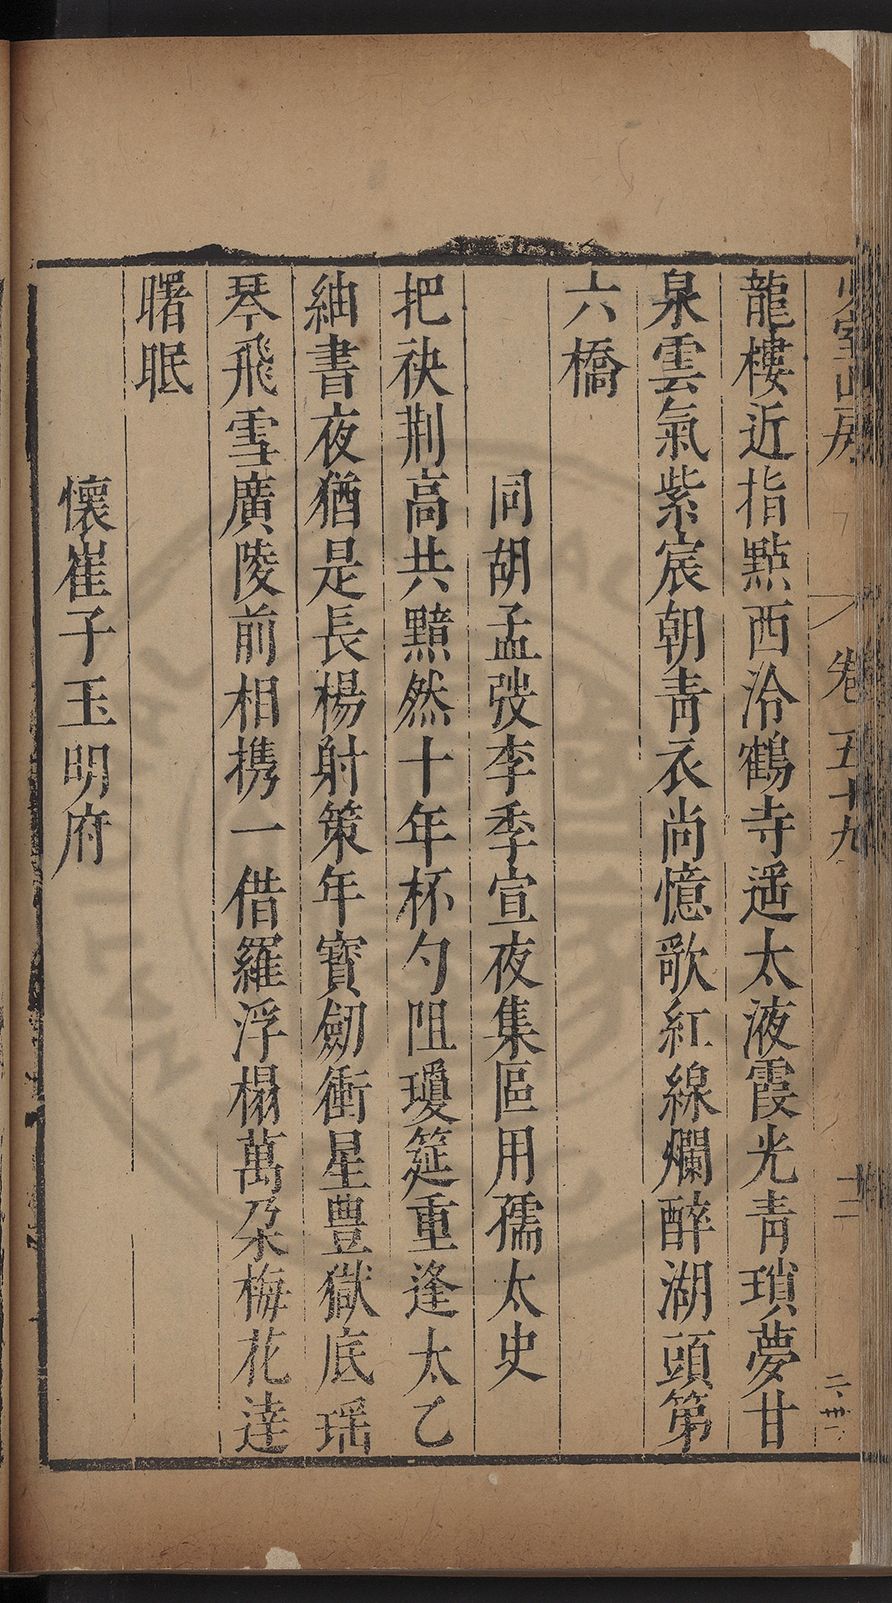 少室山房 卷五十九 十二
龍樓近指點西泠鶴寺遥太液霞光青瑣夢甘
泉雲氣紫宸朝青衣尚憶歌紅線爛醉湖頭第
六橋
同胡孟弢李季宣夜集區用孺太史
把袂荆高共黯然十年杯勺阻瓊筵重逢太乙
紬書夜猶是長楊射策年寶劒衝星豊獄底瑶
琴飛雪廣陵前相携一借羅浮榻萬朶梅花達
曙眠
懷崔子玉明府